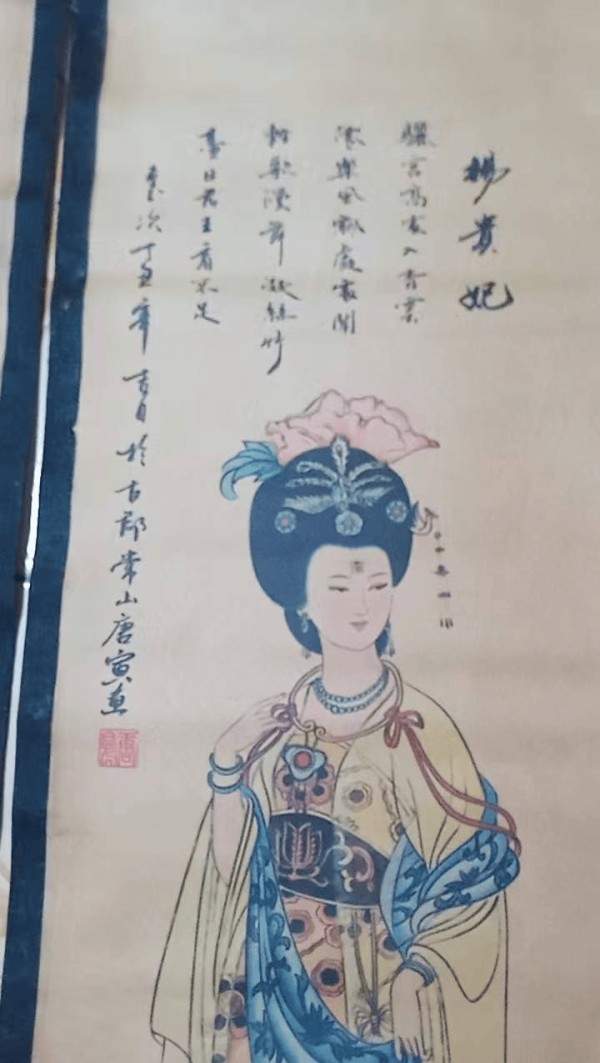 楊貴妃
驪宮高處入青雲
僊樂風飄處處聞
緩歌慢舞凝絲竹
盡日君王看不足
歲次丁丑年吉日於古郡常山唐寅畫